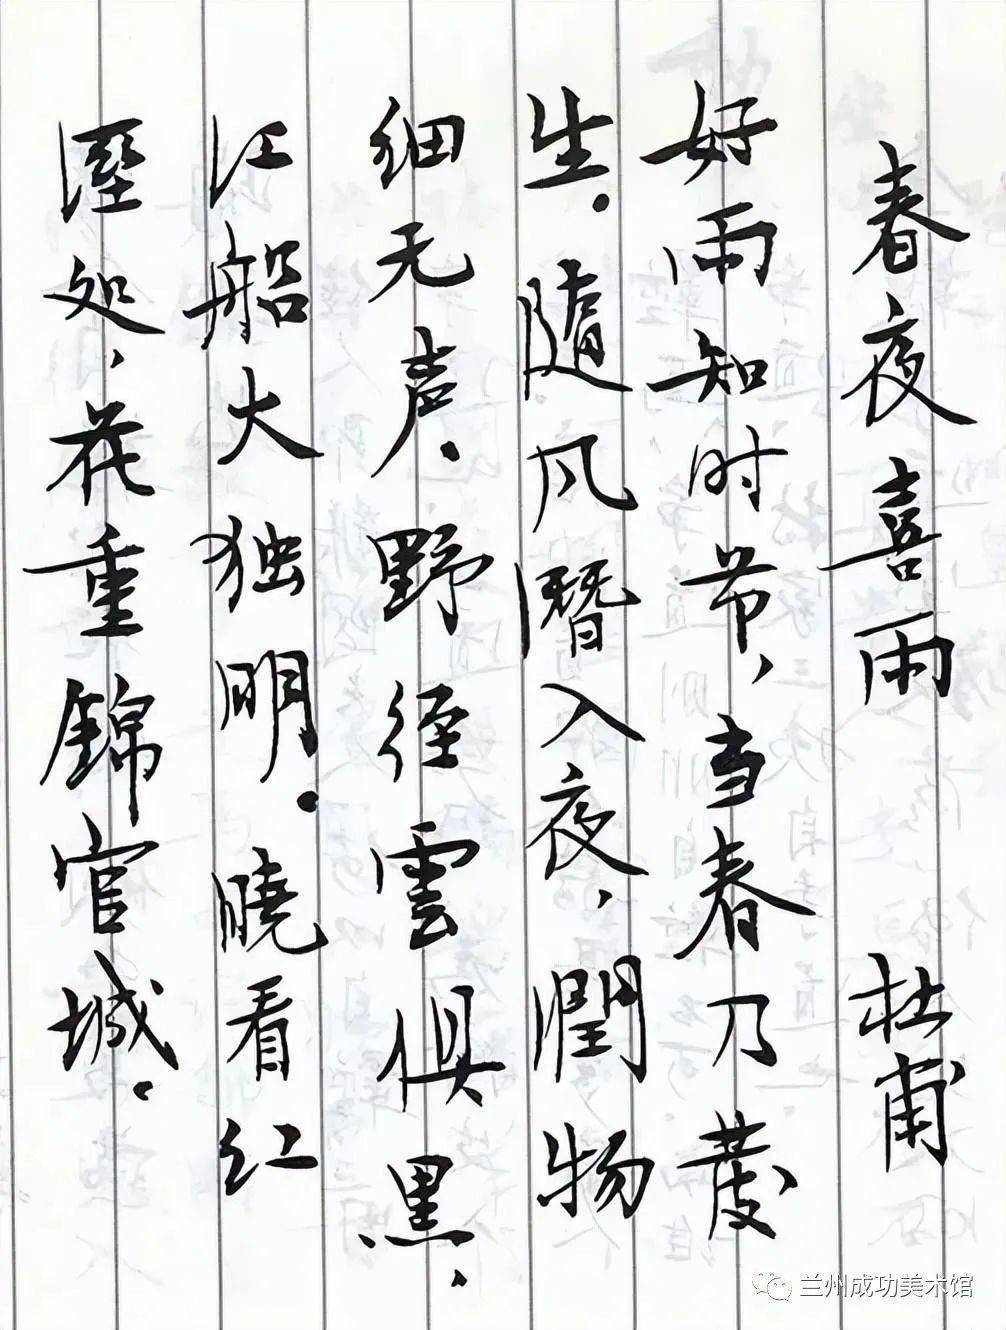 春夜喜雨 杜甫
好雨知时节，当春乃發
生。随风潜入夜，潤物
细无声。野径雲俱黑，
江船大独明。曉看红
溼处，花重錦官城。
兰州成功美术馆